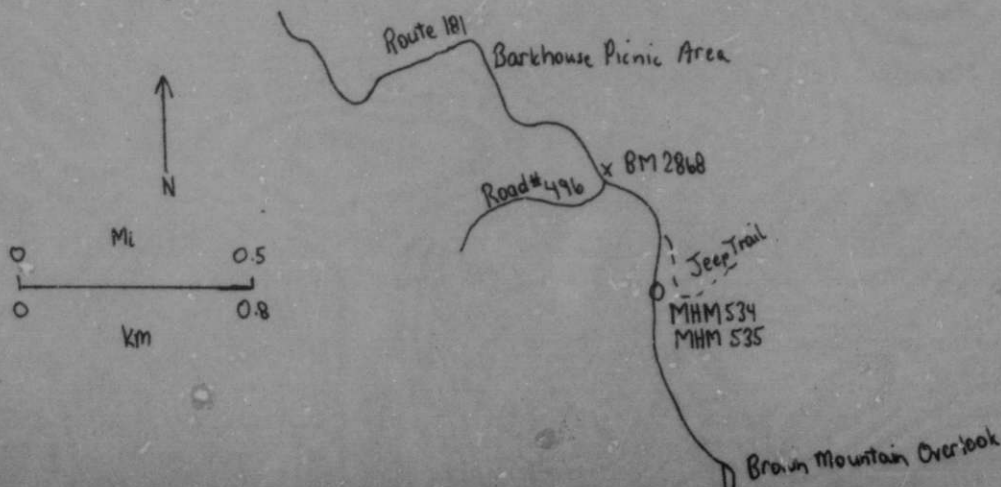 Route 181
Barkhouse Picnic Area
N
x BM 2868
Road #496
Mi
0 0.5
0 0.8
Km
Jeep Trail
MHM 534
MHM 535
Brown Mountain Overlook